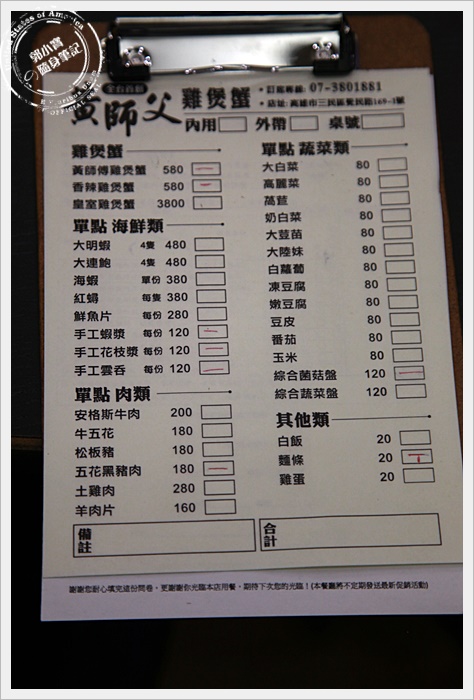 States of America
郭小寶
の隨身筆記
黃師父 雞煲蟹
• 訂席專線: 07-3801881
• 店址: 高雄市三民區覺民路169-1號
內用 外帶 桌號
雞煲蟹
黃師傅雞煲蟹 580 一
香辣雞煲蟹 580 一
皇室雞煲蟹 3800
單點 海鮮類
大明蝦 4隻 480
大連鮑 4隻 480
海蝦 單份 380
紅蟳 每隻 380
鮮魚片 每份 280
手工蝦漿 每份 120 一
手工花枝漿 每份 120 一
手工雲吞 每份 120 一
單點 肉類
安格斯牛肉 200
牛五花 180
松板豬 180
五花黑豬肉 180 一
土雞肉 280
羊肉片 160
單點 蔬菜類
大白菜 80
高麗菜 80
萵苣 80
奶白菜 80
大荳苗 80
大陸妹 80
白蘿蔔 80
凍豆腐 80
嫩豆腐 80
豆皮 80
番茄 80
玉米 80
綜合菌菇盤 120 一
綜合蔬菜盤 120
其他類
白飯 20
麵條 20 丅
雞蛋 20
備註
合計
謝謝您耐心填完這份問卷，更謝謝你光臨本店用餐，期待下次您的光臨！(本餐廳將不定期發送最新促銷活動)